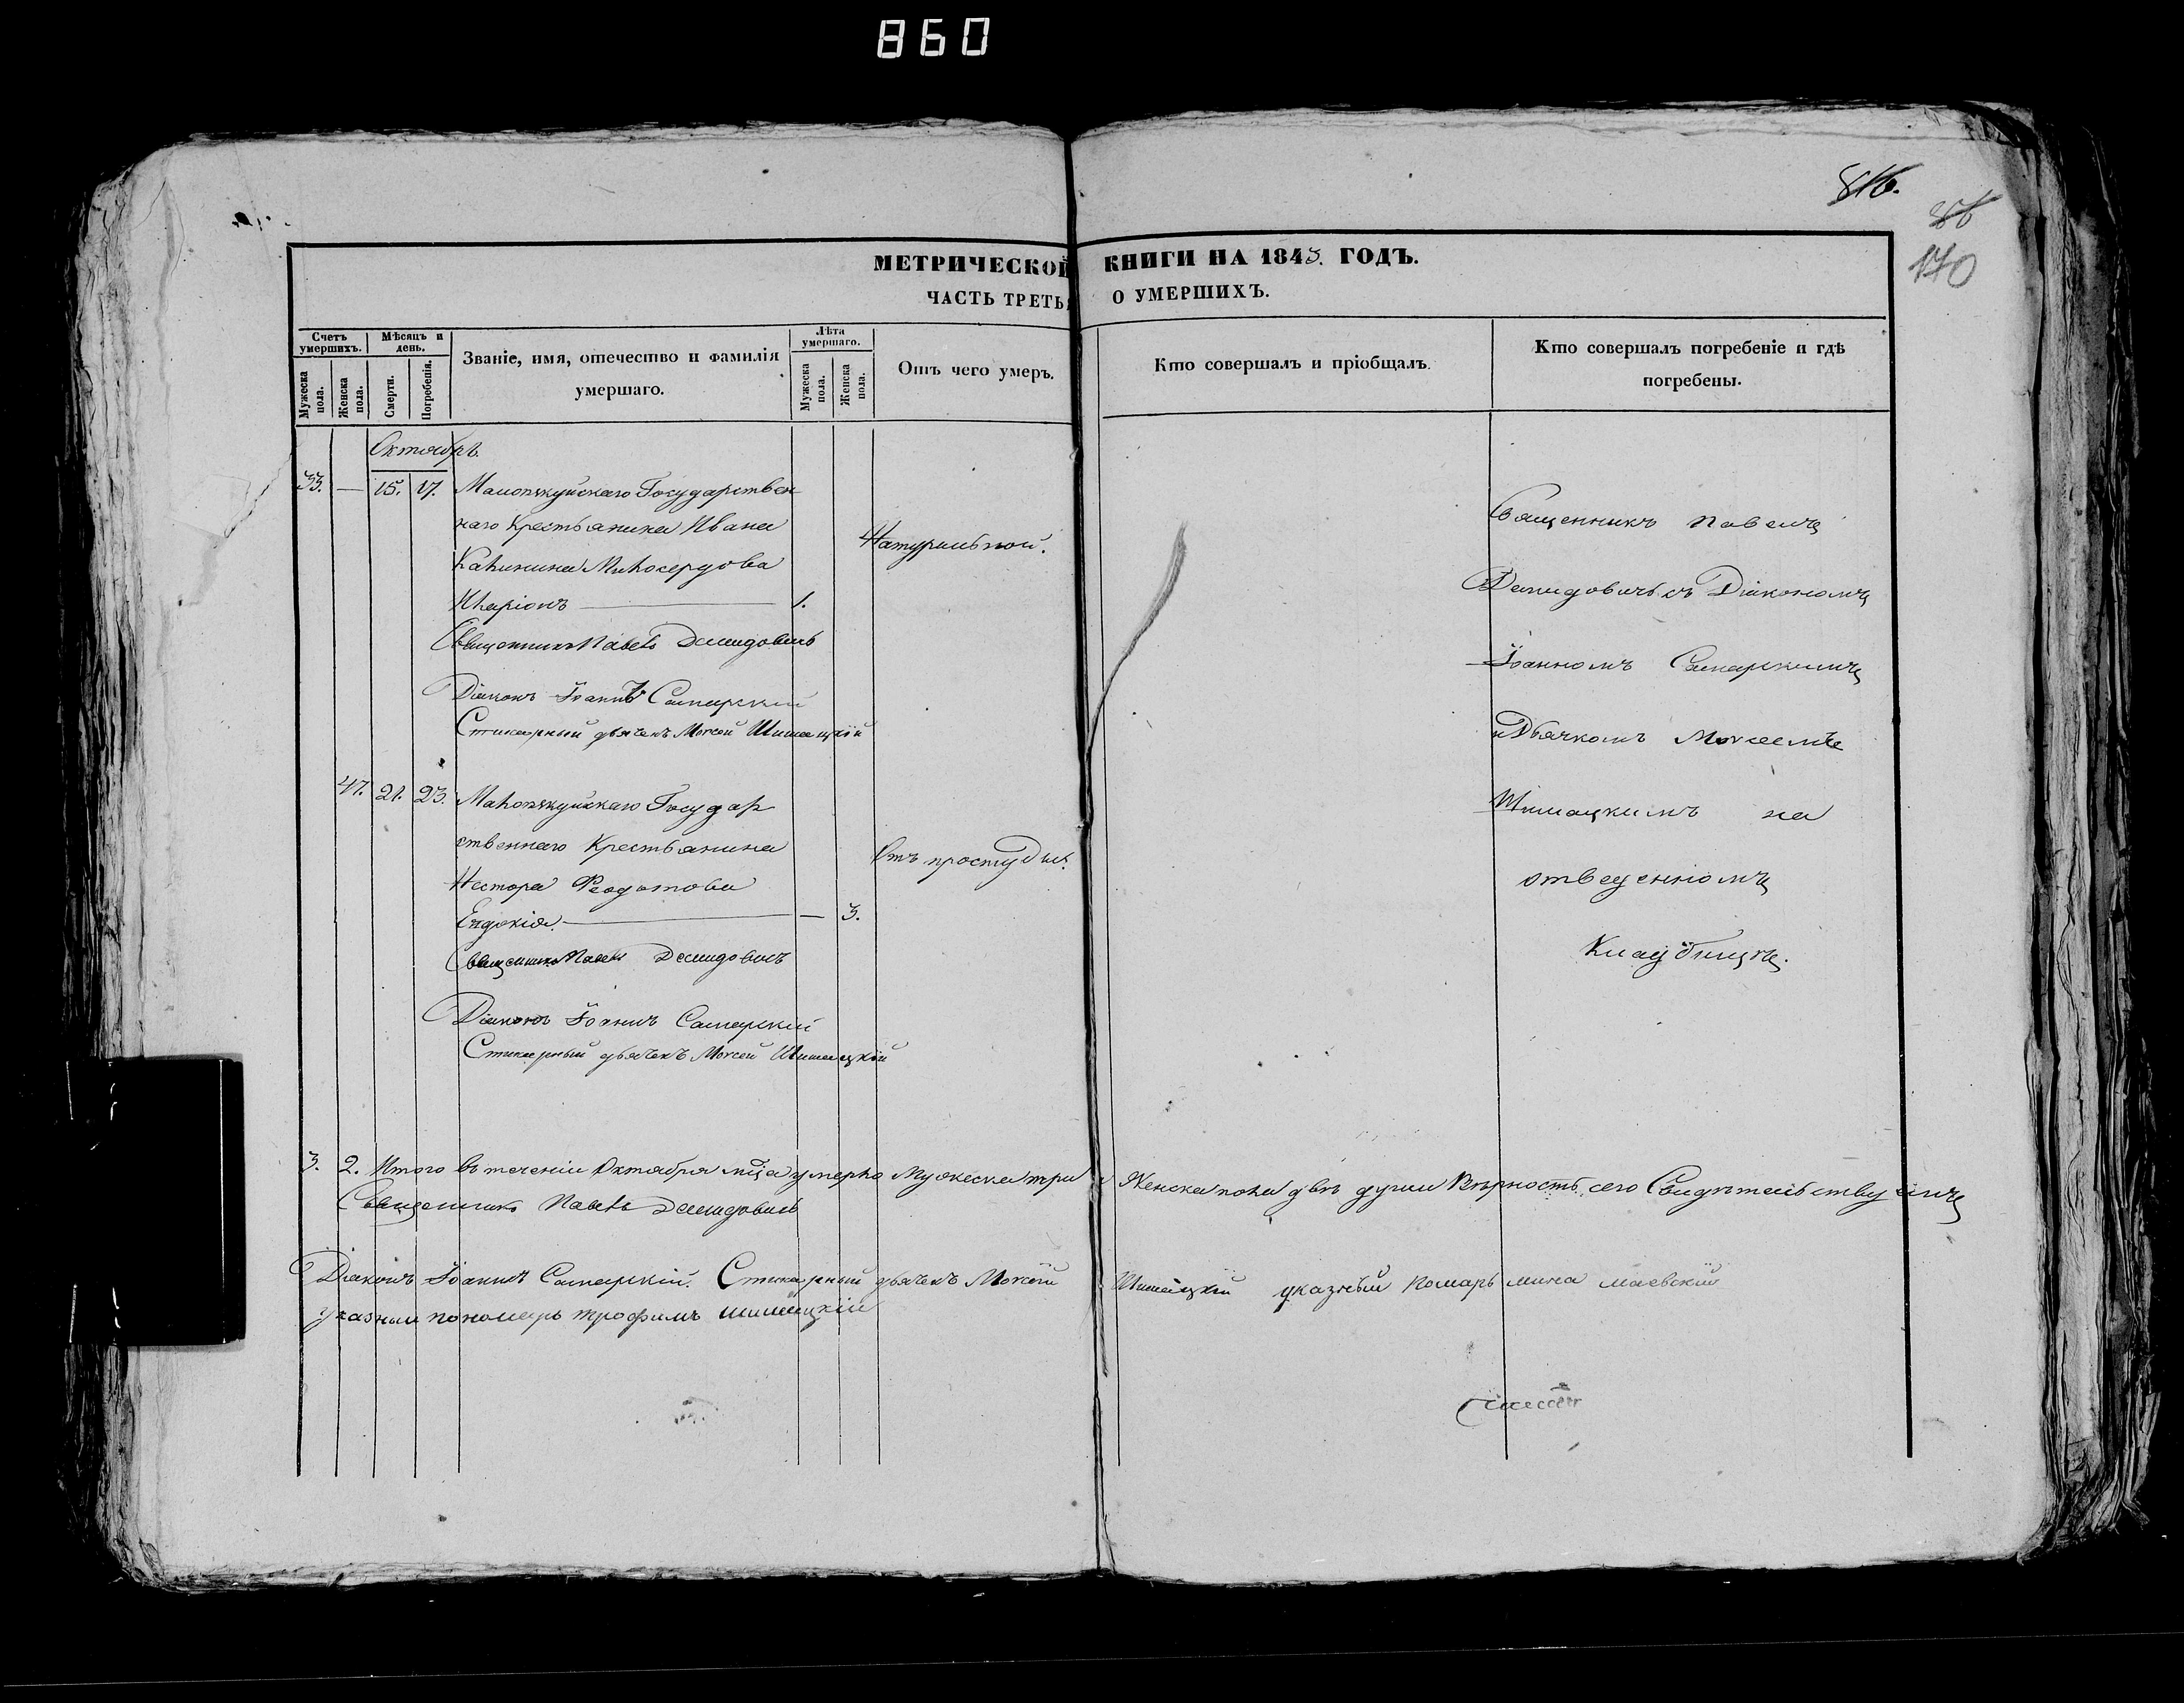 860
816.
86
170
МЕТРИЧЕСКОЙ КНИГИ НА 1843. ГОДЪ.
ЧАСТЬ ТРЕТЬЯ О УМЕРШИХЪ.
Счетъ умершихъ.
Мужеска пола.
Женска пола.
Мѣсяцъ и день.
Смерти.
Погребенія.
Званіе, имя, отечество и фамилія умершаго.
Лѣта умершаго.
Мужеска пола.
Женска пола.
Отъ чего умеръ.
Кто совершалъ и пріобщалъ.
Кто совершалъ погребеніе и гдѣ погребены.
Октябрь.
33. — 15. 17. Малопѣкуйскаго Государствен
наго Крестьянина Ивана
Калинина Милосердова
Иларіонъ — 1.
Натуральной.
Священникъ Павелъ Демидовичь
Діаконъ Іоаннъ Самарскій
Стихарный дьячекъ Моѵсей Шишацкій
47. 21. 23. Малопѣкуйскаго Государ
ственнаго Крестьянина
Нестора Ѳеодотова
Евдокія. — — 3.
Отъ простуды.
Священникъ Павелъ Демидовичь
Діаконъ Іоаннъ Самарскій
Стихарный дьячекъ Моѵсей Шишацкій
Священникъ Павелъ
Демидовичь съ Діакономъ
Іоанномъ Самарскимъ
и Дьячкомъ Моѵсеемъ
Шишацкимъ на
отведенномъ
Кладбищѣ.
3. 2. Итого въ теченіи Октября мца умерло Мужеска три и Женска пола двѣ души Вѣрность сего Свидѣтельствуемъ
Священникъ Павелъ Демидовичь
Діаконъ Іоаннъ Самарскій. Стихарный дьячекъ Моѵсей Шишацкій указный помарь мина маевскій
указный пономарь трофимъ шишацкій